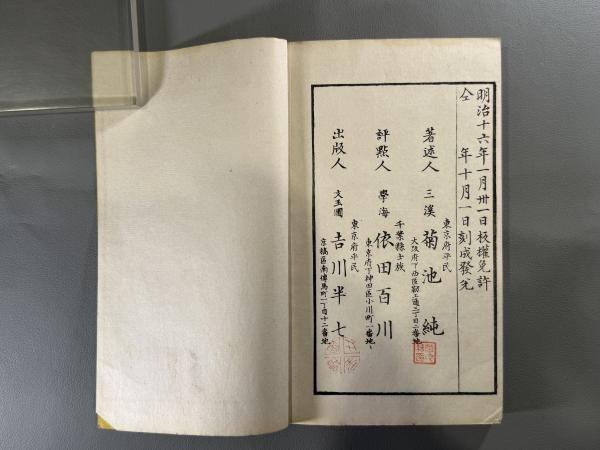 明治十六年一月卅一日板權免許
仝 年十月一日刻成發兌
東京府平民
著述人 三溪 菊池 純
大阪府下西區靭上通二丁目二番地
千葉縣士族
評點人 學海 依田百川
東京府下神田區小川町一番地
東京府平民
出版人 文玉圃 吉川半七
京橋區南傳馬町一丁目十二番地